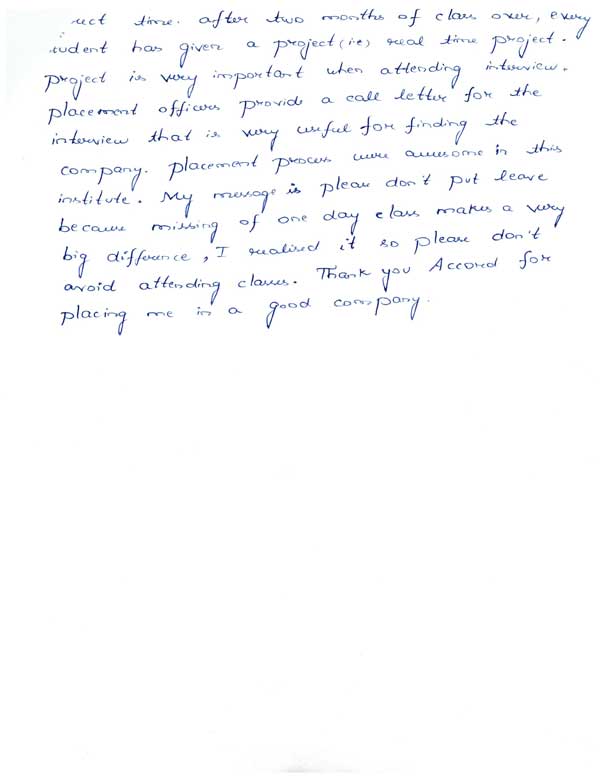 time. after two months of class over, every
student has given a project (ie) real time project.
project is very important when attending interview.
placement officers provide a call letter for the
interview that is very useful for finding the
company. placement process were awesome in this
institute. My message is please don't put leave
because missing of one day class makes a very
big difference, I realised it so please don't
avoid attending classes. Thank you Accord for
placing me in a good company.